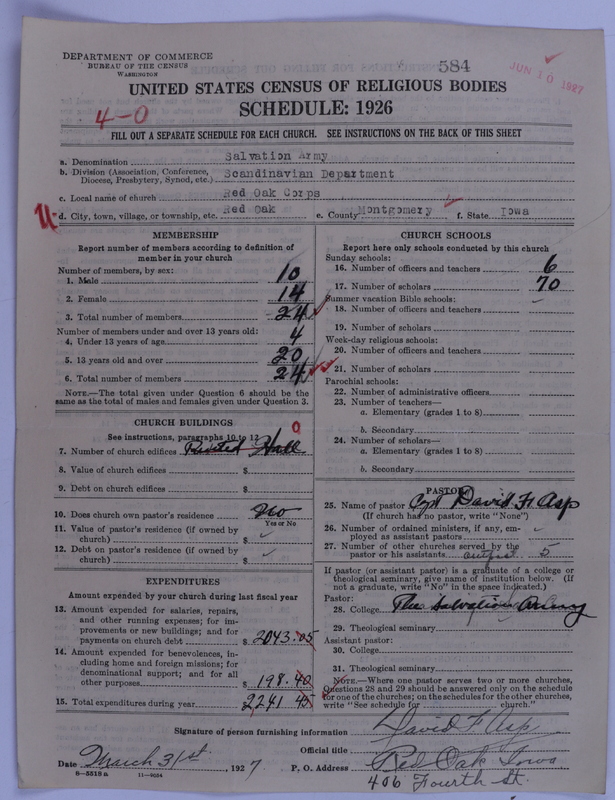 DEPARTMENT OF COMMERCE
BUREAU OF THE CENSUS
WASHINGTON
584
JUN 10 1927
UNITED STATES CENSUS OF RELIGIOUS BODIES
SCHEDULE: 1926
4-0
FILL OUT A SEPARATE SCHEDULE FOR EACH CHURCH. SEE INSTRUCTIONS ON THE BACK OF THIS SHEET
a. Denomination Salvation Army
b. Division (Association, Conference, Diocese, Presbytery, Synod, etc.) Scandinavian Department
c. Local name of church Red Oak Corps
d. City, town, village, or township, etc. Red Oak e. County Montgomery f. State Iowa
MEMBERSHIP
Report number of members according to definition of
member in your church
Number of members, by sex:
1. Male 10
2. Female 14
3. Total number of members 24
Number of members under and over 13 years old:
4. Under 13 years of age 4
5. 13 years old and over 20
6. Total number of members 24
NOTE.—The total given under Question 6 should be
same as the total of males and females given under Question 3.
CHURCH BUILDINGS
See instructions, paragraphs 10 to 12
0
7. Number of church edifices Rented Hall
8. Value of church edifices $
9. Debt on church edifices $
10. Does church own pastor's residence No
Yes or No
11. Value of pastor's residence (if owned by
church) $
12. Debt on pastor's residence (if owned by
church) $
EXPENDITURES
Amount expended by your church during last fiscal year
13. Amount expended for salaries, repairs,
and other running expenses; for im-
provements or new buildings; and for
payments on church debt $ 2043.05
14. Amount expended for benevolences, in-
cluding home and foreign missions; for
denominational support; and for all
other purposes $ 198.40
15. Total expenditures during year 2241 45
CHURCH SCHOOLS
Report here only schools conducted by this church
Sunday schools:
16. Number of officers and teachers 6
17. Number of scholars 70
Summer vacation Bible schools:
18. Number of officers and teachers
19. Number of scholars
Week-day religious schools:
20. Number of officers and teachers
21. Number of scholars
Parochial schools:
22. Number of administrative officers
23. Number of teachers—
a. Elementary (grades 1 to 8)
b. Secondary
24. Number of scholars—
a. Elementary (grades 1 to 8)
b. Secondary
PASTOR
25. Name of pastor Capt David F. Asp
(If church has no pastor, write "None")
26. Number of ordained ministers, if any, em-
ployed as assistant pastors
27. Number of other churches served by the
pastor or his assistants outpost 5
If pastor (or assistant pastor) is a graduate of a college or
theological seminary, give name of institution below. (If
not a graduate, write "No" in the space indicated.)
Pastor:
28. College The Salvation Army
29. Theological seminary
Assistant pastor:
30. College
31. Theological seminary
NOTE.—Where one pastor serves two or more churches,
Questions 28 and 29 should be answered only on the schedule
for one of the churches; on the schedules for the other churches,
write "See schedule for church."
Signature of person furnishing information David F. Asp
Official title
Date March 31st. 1927 P. O. Address Red Oak Iowa
6-5518a 11-9054
406 Fourth St.